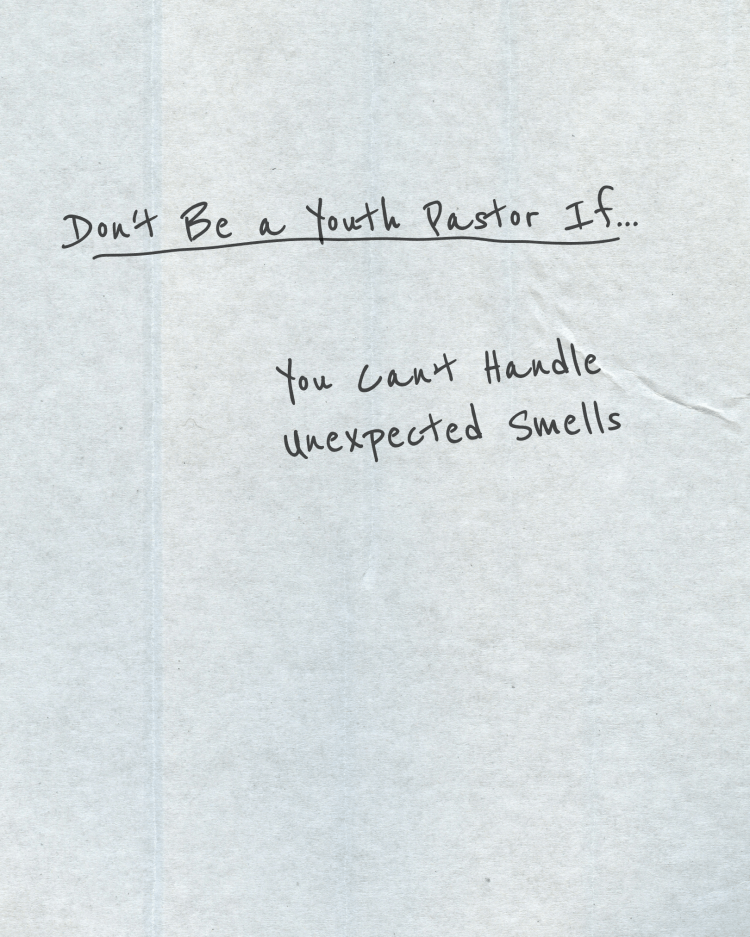 Don't Be a Youth Pastor If...
You Can't Handle
Unexpected Smells